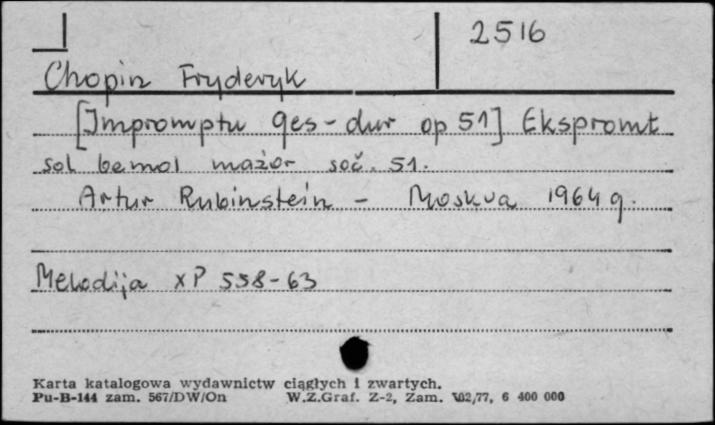 2516
Chopin Fryderyk
[Impromptu Ges-dur op 51] Ekspromt
sol bemol mażor soč. 51.
Artur Rubinstein - Moskva 1964 g.
Melodija XP 558-63
Karta katalogowa wydawnictw ciągłych i zwartych.
Pu-B-144 zam. 567/DW/On W.Z.Graf. Z-2, Zam. 102/77, 6 400 000